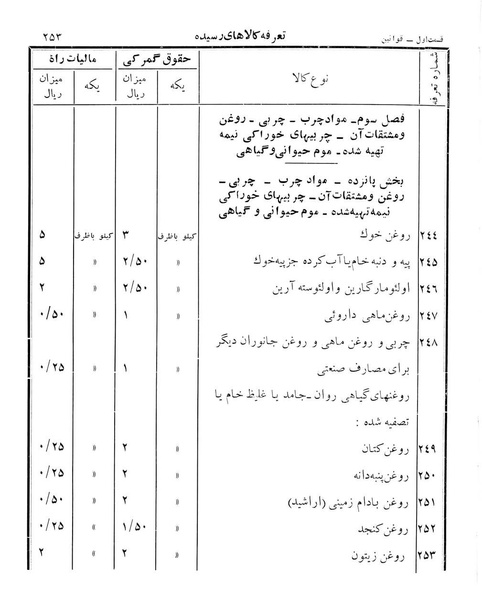 قسمت اول ــ قوانین	تعرفه کالاهای رسیده	۲۵۳
شماره تعرفه	نوع کالا	حقوق گمرکی	مالیات راه
یکه	میزان ریال	یکه	میزان ریال
فصل سوم ــ مواد چرب ــ چربی ــ روغن
و مشتقات آن ــ چربیهای خوراکی نیمه
تهیه شده ــ موم حیوانی و گیاهی
بخش پانزده ــ مواد چرب ــ چربی ــ
روغن و مشتقات آن ــ چربیهای خوراکی
نیمه تهیه شده ــ موم حیوانی و گیاهی
۲۴۴	روغن خوك	کیلو باظرف	۳	کیلو باظرف	۵
۲۴۵	پیه و دنبه خام یا آب کرده جز پیه خوك	»	۲/۵۰	»	۵
۲۴۶	اولئومارگارین و اولئوسته آرین	»	۲/۵۰	»	۲
۲۴۷	روغن ماهی داروئی	»	۱	»	۰/۵۰
۲۴۸	چربی و روغن ماهی و روغن جانوران دیگر
برای مصارف صنعتی	»	۱	»	۰/۲۵
روغنهای گیاهی روان ــ جامد یا غلیظ خام یا
تصفیه شده :
۲۴۹	روغن کتان	»	۲	»	۰/۲۵
۲۵۰	روغن پنبه دانه	»	۲	»	۰/۲۵
۲۵۱	روغن بادام زمینی (اراشید)	»	۲	»	۰/۵۰
۲۵۲	روغن کنجد	»	۱/۵۰	»	۰/۲۵
۲۵۳	روغن زیتون	»	۲	»	۲